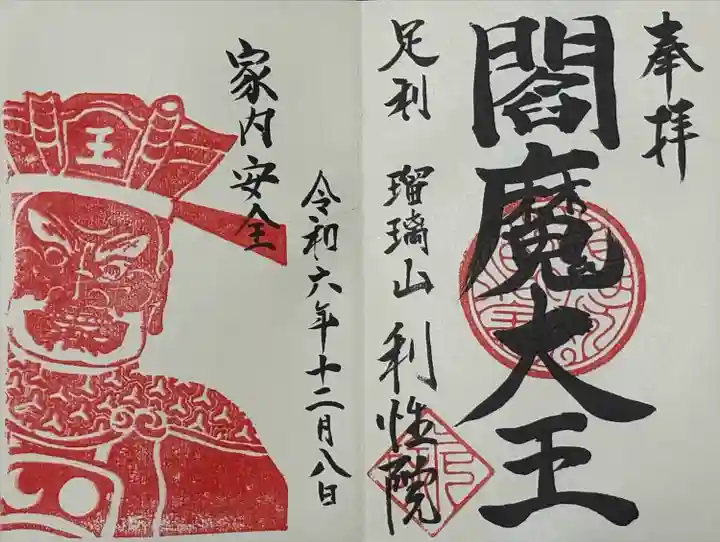 奉拝
閻魔大王
足利 瑠璃山 利性院
家内安全
令和六年十二月八日
王